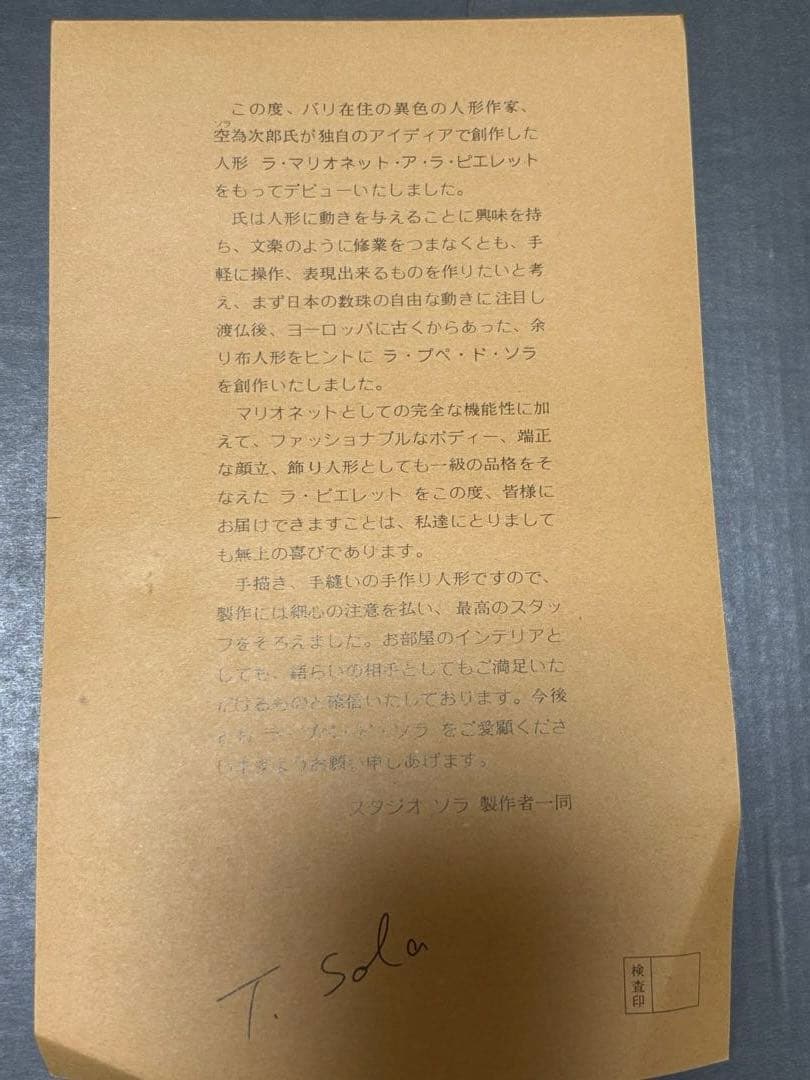 この度、パリ在住の異色の人形作家、
ソラ
空為次郎氏が独自のアイディアで創作した
人形 ラ・マリオネット・ア・ラ・ピエレット
をもってデビューいたしました。
氏は人形に動きを与えることに興味を持
ち、文楽のように修業をつまなくとも、手
軽に操作、表現出来るものを作りたいと考
え、まず日本の数珠の自由な動きに注目し
渡仏後、ヨーロッパに古くからあった、余
り布人形をヒントに ラ・プペ・ド・ソラ
を創作いたしました。
マリオネットとしての完全な機能性に加
えて、ファッショナブルなボディー、端正
な顔立、飾り人形としても一級の品格をそ
なえた ラ・ピエレット をこの度、皆様に
お届けできますことは、私達にとりまして
も無上の喜びであります。
手描き、手縫いの手作り人形ですので、
製作には細心の注意を払い、最高のスタッ
フをそろえました。お部屋のインテリアと
しても、語らいの相手としてもご満足いた
だけるものと確信いたしております。今後
とも、ラ・プペ・ド・ソラ をご愛顧くださ
いますようお願い申しあげます。
スタジオ ソラ 製作者一同
T. Sola
検査印